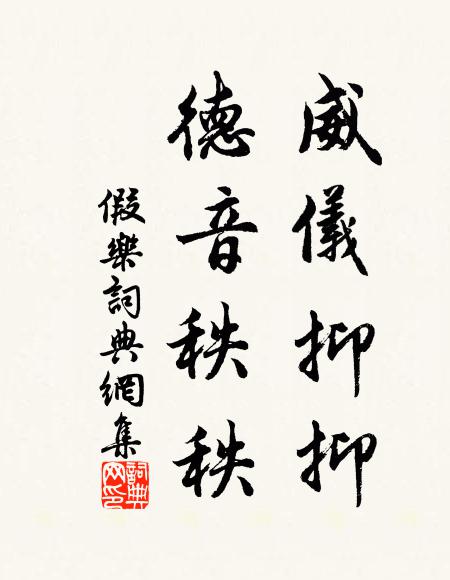 威儀抑抑
德音秩秩
假樂詞典網集
詞典網印